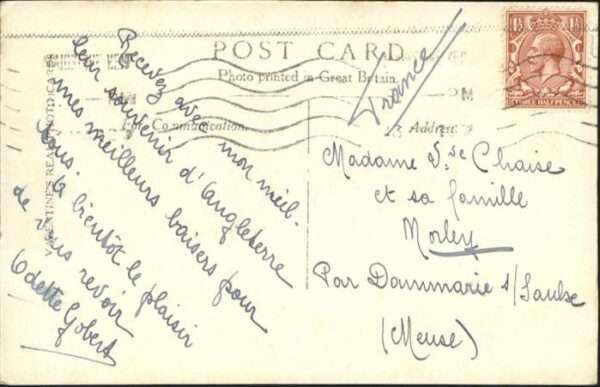 POST CARD
Photo printed in Great Britain.
For Communication.
Address.
VALENTINE'S REAL PHOTO CARDS
THREE HALFPENCE
Recevez avec mon meil-
leur souvenir d'Angleterre
mes meilleurs baisers pour
tous.
A bientôt le plaisir
de vous revoir
Odette Gobert
France
Madame Vse Chaise
et sa famille
Morley
Par Dammarie s/ Saulse
(Meuse)